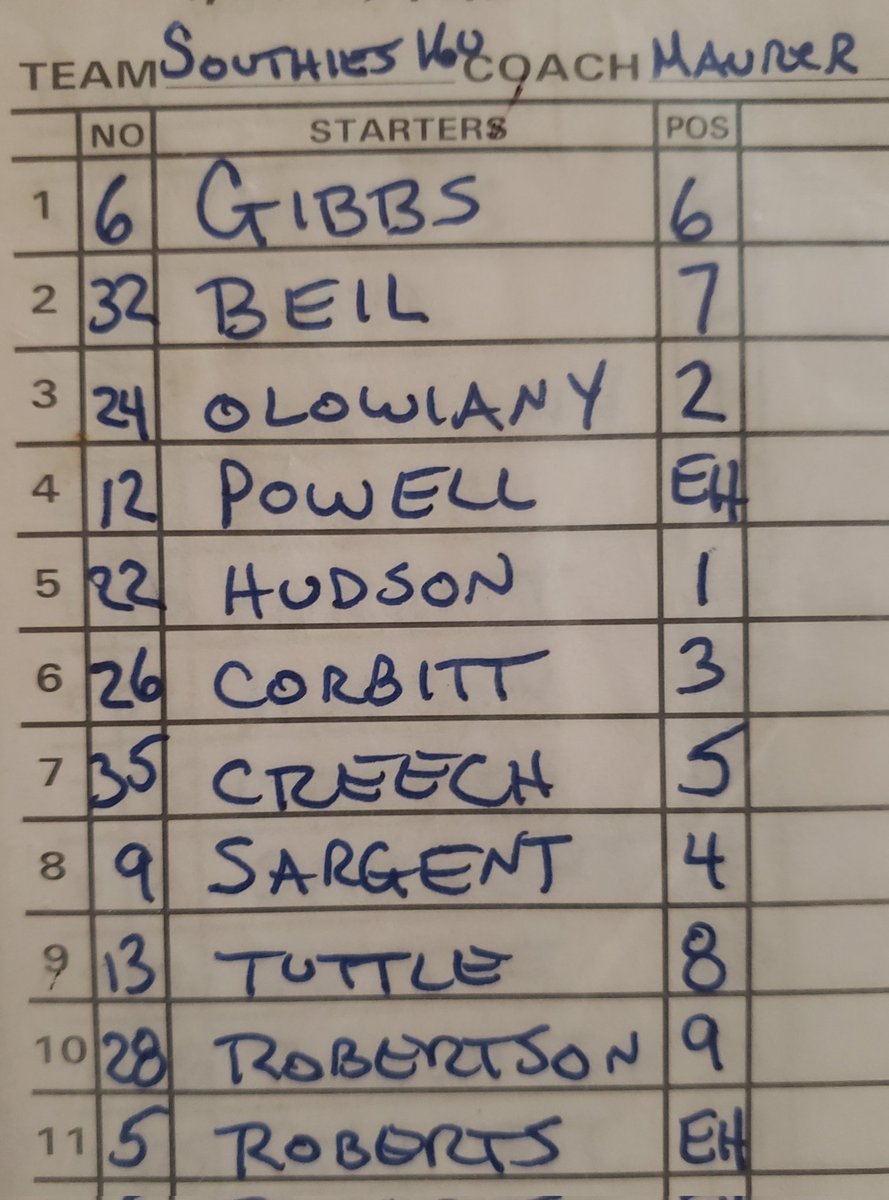 TEAM SOUTHIES 16U COACH MAURER
NO STARTERS POS
1 6 GIBBS 6
2 32 BEIL 7
3 24 OLOWIANY 2
4 12 POWELL EH
5 22 HUDSON 1
6 26 CORBITT 3
7 35 CREECH 5
8 9 SARGENT 4
9 13 TUTTLE 8
10 28 ROBERTSON 9
11 5 ROBERTS EH